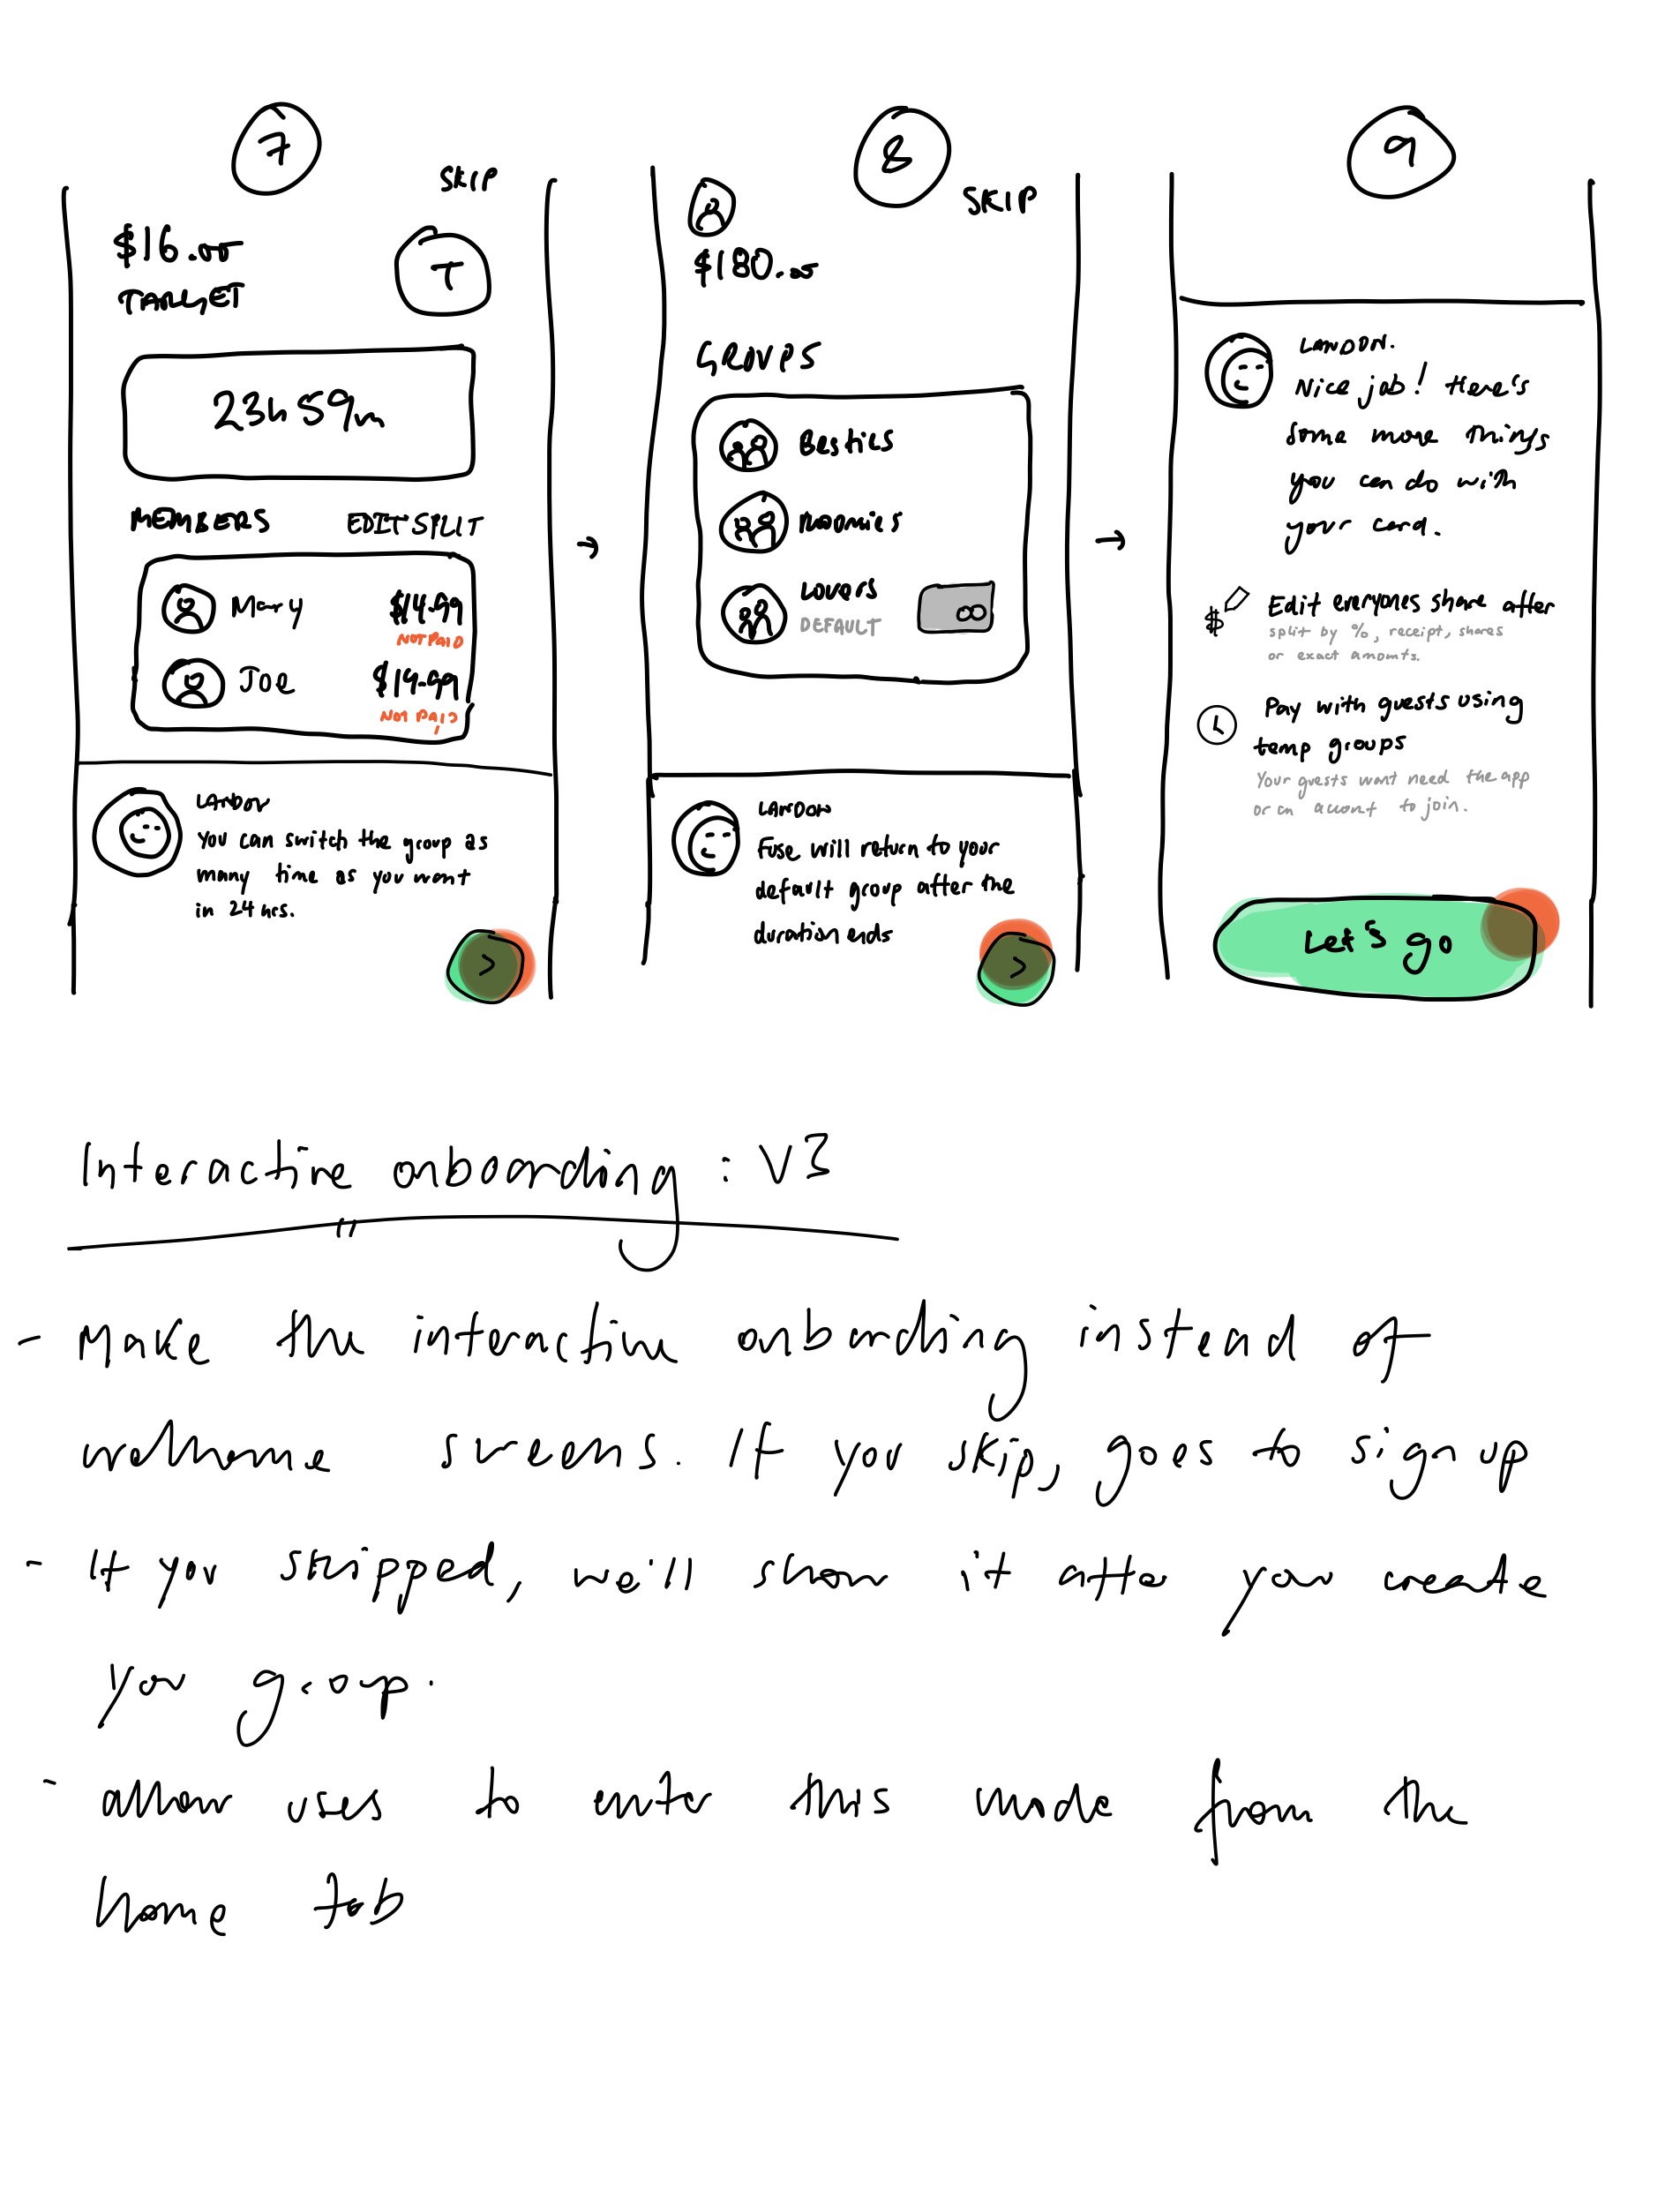 7
SKIP
$16.00
TARGET
T
23h 59m
MEMBERS EDIT SPLIT
Mary $14.99
NOT PAID
Joe $14.99
NOT PAID
LANDON
You can switch the group as
many time as you want
in 24 hrs.
>
→
8
SKIP
$180.00
GROUPS
Besties
Roomies
Lovers
DEFAULT
LANDON
Fuse will return to your
default group after the
duration ends
>
→
9
LANDON.
Nice job! Here's
some more things
you can do with
your card.
$
Edit everyones share after
split by %, receipt, shares
or exact amomts.
Pay with guests using
temp groups
Your guests wont need the app
or an account to join.
Let's go
Interactive onboarding : V3
- Make the interactive onboarding instead of
welcome screens. If you skip, goes to sign up
- If you skipped, we'll show it after you create
you group.
- allow uses to enter this mode from the
home tab